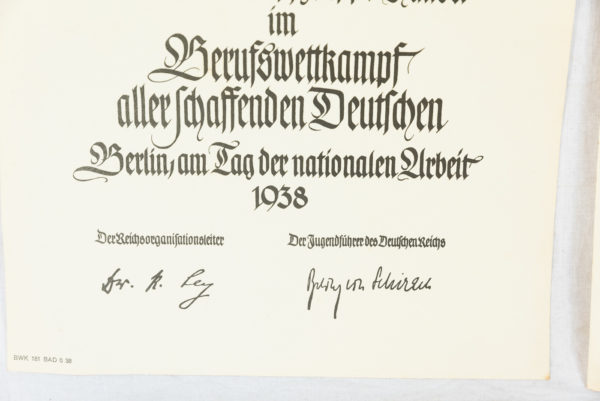 im
Berufswettkampf
aller schaffenden Deutschen
Berlin, am Tag der nationalen Arbeit
1938
Der Reichsorganisationsleiter
Der Jugendführer des Deutschen Reichs
Dr. R. Ley
Baldur von Schirach
BWK 181 BAD 5 38